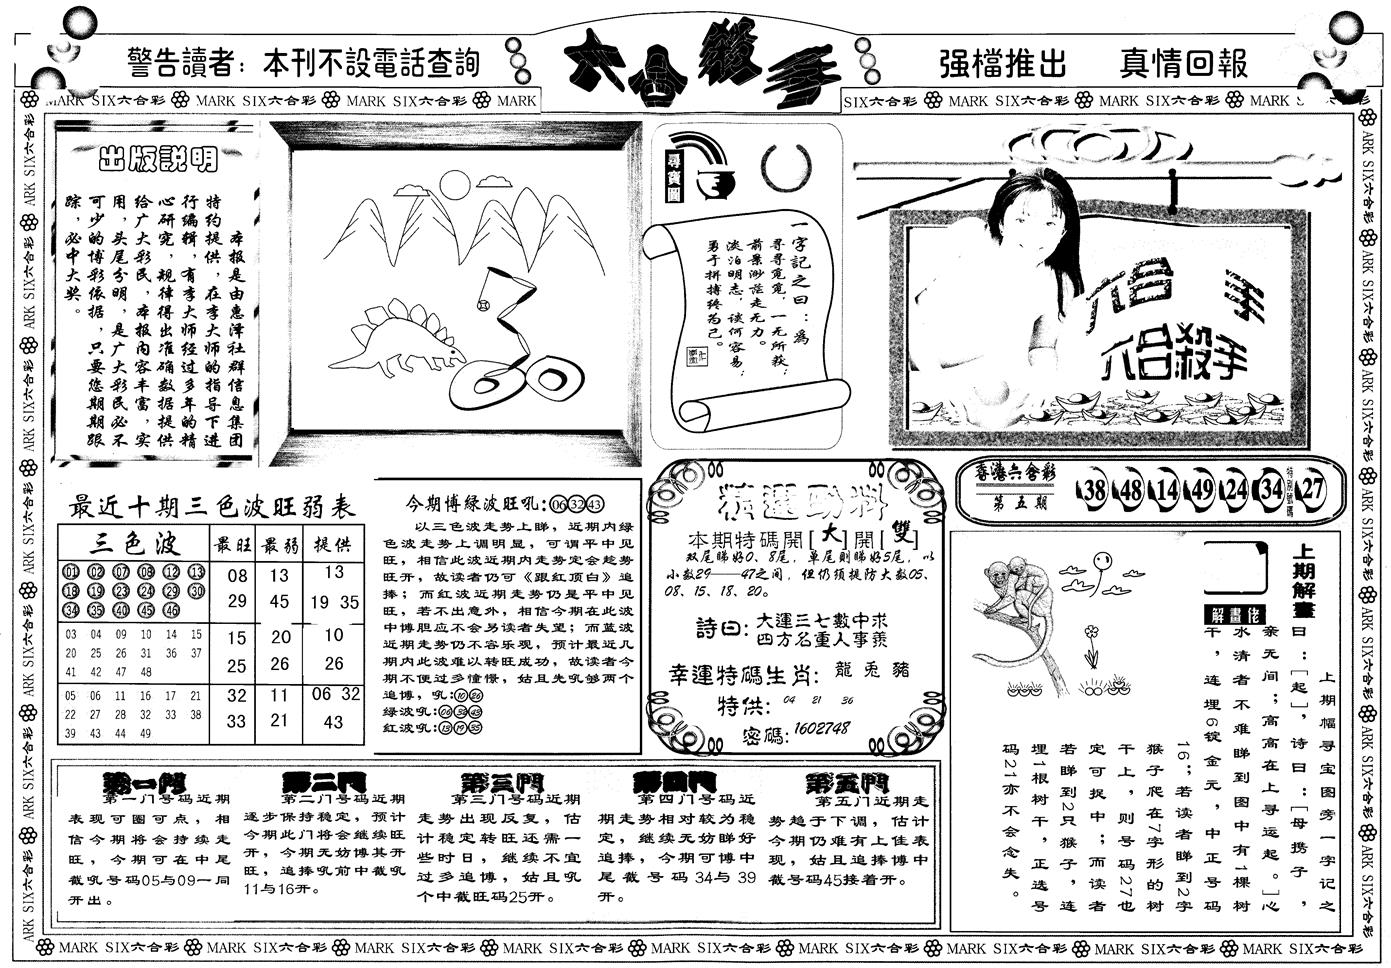 警告讀者：本刊不設電話查詢
六合殺手
强檔推出 真情回報
MARK SIX六合彩 MARK SIX六合彩 MARK SIX六合彩 MARK
SIX六合彩 MARK SIX六合彩 MARK SIX六合彩 MARK
出版説明
本报是由惠泽社群信息集团
特约提供，在李大师的指导下进
行编辑，有李大师经过多年的精
心研究，规律得出准确数据提供
给广大彩民，本报内容丰富，实
用，头尾分明，是广大彩民必不
可少的博彩依据，只要您期期跟
踪，必中大奖。
尋寶圖
一字記之曰：爲
寻寻觅觅，一无所获；
前景渺茫走无力。
淡泊明志，谈何容易；
勇于拼搏终为己。
六合 手
六合殺手
香港六合彩
第五期
38 48 14 49 24 34 特别號碼 27
最近十期三色波旺弱表
三色波 最旺 最弱 提供
01 02 07 08 12 13
18 19 23 24 29 30
34 35 40 45 46
08 13 13
29 45 19 35
03 04 09 10 14 15
20 25 26 31 36 37
41 42 47 48
15 20 10
25 26 26
05 06 11 16 17 21
22 27 28 32 33 38
39 43 44 49
32 11 06 32
33 21 43
今期博緑波旺吼：06 32 43
以三色波走势上睇，近期内绿
色波走势上调明显，可谓平中见
旺，相信此波近期内走势定会趁势
旺开，故读者仍可《跟红顶白》追
捧；而红波近期走势仍是平中见
旺，若不出意外，相信今期在此波
中博胆应不会另读者失望；而蓝波
近期走势仍不容乐观，预计最近几
期内此波难以转旺成功，故读者今
期不便过多憧憬，姑且先吼够两个
追博，吼：10 26
绿波吼：06 32 43
红波吼：13 19 35
精選劲料
本期特碼開［大］開［雙］
双尾睇好0、8尾，單尾則睇好5尾，以
小数29——47之间，但仍须提防大数05、
08、15、18、20。
詩曰：大運三七數中求
四方名重人事羨
幸運特碼生肖：龍 兎 豬
特供：04 21 36
密碼：1602748
上期解畫
解畫佬
上期幅寻宝图旁一字记之
曰：［起］，诗曰：［母携子，
亲无间；高高在上寻运起。］心
水清者不难睇到图中有1棵树
干，连埋6锭金元，中正号码
16；若读者睇到2字
猴子爬在7字形的树
干上，则号码27也
定可捉中；而读者
若睇到2只猴子，连
埋1根树干，正选号
码21亦不会念失。
第一門
第一门号码近期
表现可圈可点，相
信今期将会持续走
旺，今期可在中尾
截吼号码05与09一同
开出。
第二門
第二门号码近期
逐步保持稳定，预计
今期此门将会继续旺
开，今期无妨博其开
旺，追捧吼前中截吼
11与16开。
第三門
第三门号码近期
走势出现反复，估
计稳定转旺还需一
些时日，继续不宜
过多追博，姑且吼
个中截旺码25开。
第四門
第四门号码近
期走势相对较为稳
定，继续无妨睇好
追捧，今期可博中
尾截号码34与39
开。
第五門
第五门近期走
势趋于下调，估计
今期仍难有上佳表
现，姑且追捧博中
截号码45接着开。
MARK SIX六合彩 MARK SIX六合彩 MARK SIX六合彩 MARK SIX六合彩 MARK SIX六合彩 MARK SIX六合彩 MARK SIX六合彩 MARK SIX六合彩 MARK SIX六合彩